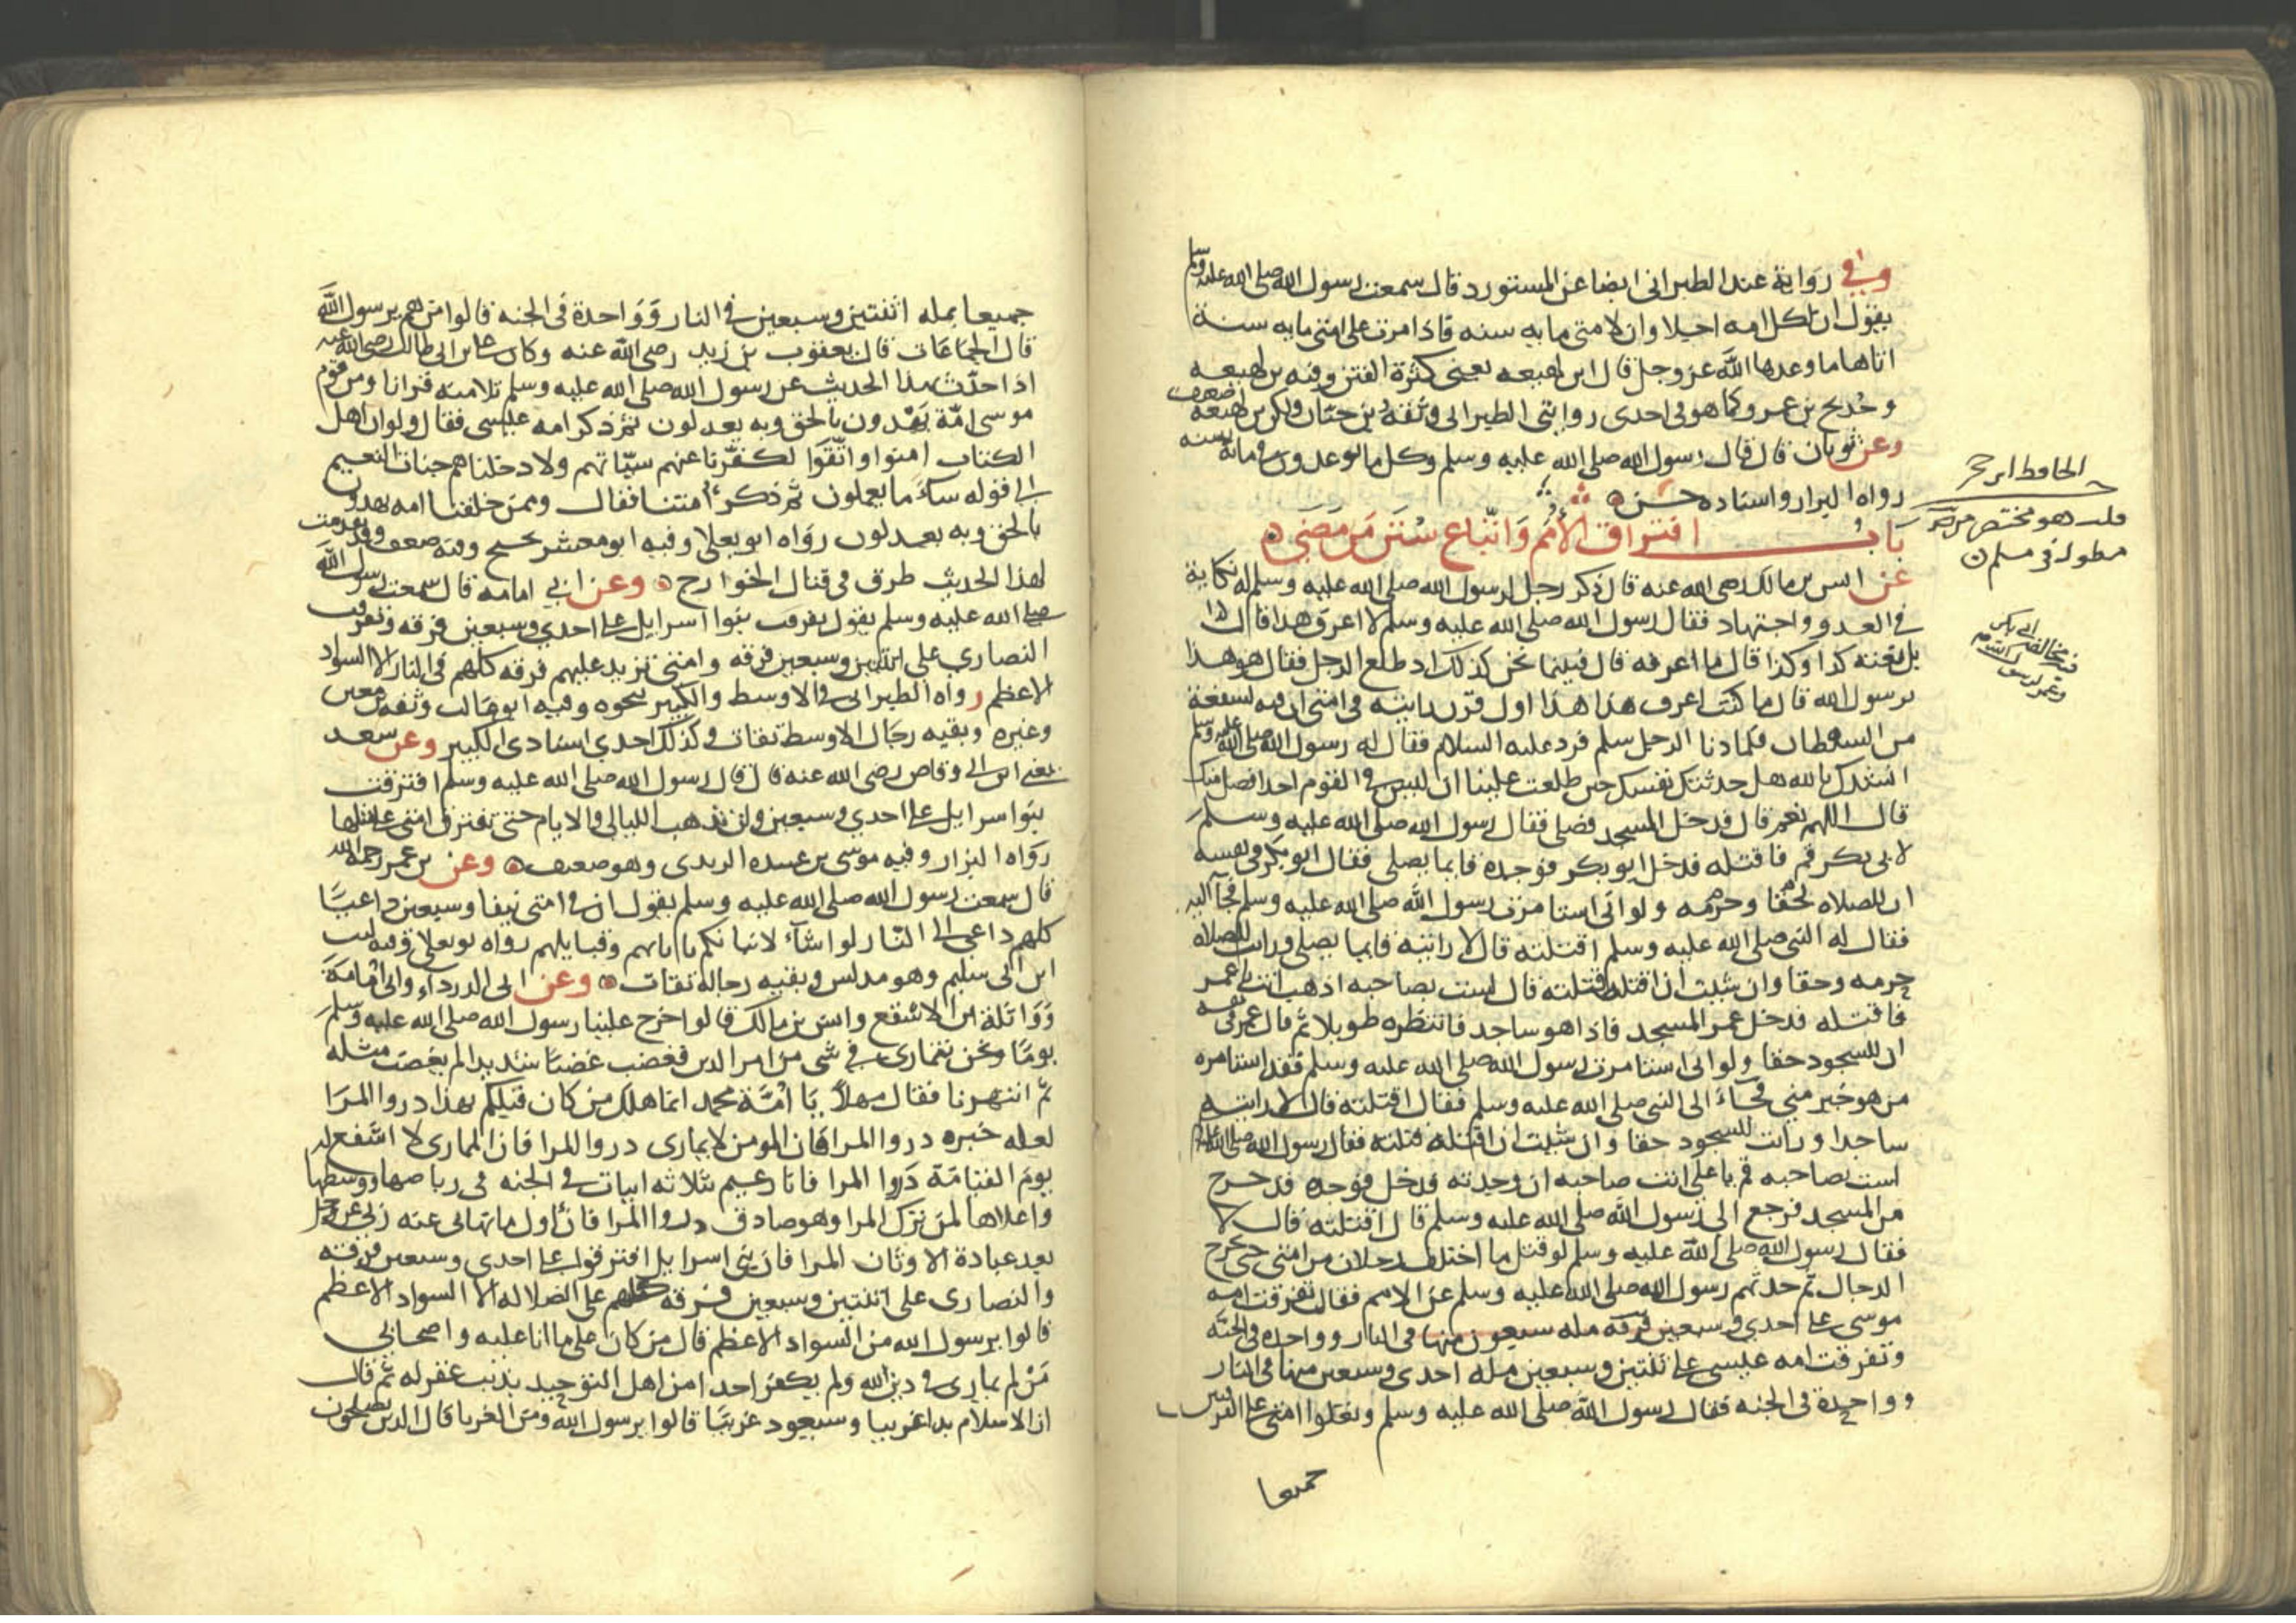 وفي رواية عند الطبراني ايضا عن المستورد قال سمعت رسول الله صلى الله عليه وسلم
يقول ان لكل امه اجلا وان لامتي مايه سنه فاذا مرت على امتي مايه سنة
اتاها ما وعدها الله عز وجل قال ابن لهيعه يعني كثرة الفتن وفيه بن لهيعه
وخديج بن عمرو كما هو في احدى روايتي الطبراني وثقه بن حبان ولكن بن لهيعة ضعيف
وعن ثوبان قال قال رسول الله صلى الله عليه وسلم وكل ما توعدون في مائة سنه
رواه البزار واسناده حسن
باب افتراق الأمم وَاتّباع سُنَن مَن مَضَى
عن انس بن مالك رضي الله عنه قال ذكر رجل لرسول الله صلى الله عليه وسلم له نكاية
في العدو واجتهاد فقال رسول الله صلى الله عليه وسلم لا اعرف هذا قال
بل نعته كذا وكذا قال ما اعرفه قال فبينما نحن كذلك اذ طلع الرجل فقال هو هذا
يرسول الله قال ما كنت اعرف هذا هذا اول قرن رايته في امتي ان فيه لسفعة
من الشيطان فلما دنا الرجل سلم فرد عليه السلام فقال له رسول الله صلى الله عليه وسلم
انشدك بالله هل حدثتك نفسك حين طلعت علينا ان ليس في القوم احد افضل منك
قال اللهم نعم قال فدخل المسجد فصلى فقال رسول الله صلى الله عليه وسلم
لابي بكر قم فاقتله فدخل ابو بكر فوجده قايما يصلي فقال ابو بكر في نفسه
ان للصلاه لحقا وحرمه ولو اني استامرت رسول الله صلى الله عليه وسلم فجآ اليه
فقال له النبي صلى الله عليه وسلم اقتلته قال لا رايته قايما يصلي ورايت للصلاه
حرمه وحقا وان شيت ان اقتله قتلته قال لست بصاحبه اذهب انت يا عمر
فاقتله فدخل عمر المسجد فاذا هو ساجد فانتظره طويلا ثم قال عمر في نفسه
ان للسجود حقا ولو اني استامرت رسول الله صلى الله عليه وسلم فقد استامره
من هو خير مني فجاءَ الى النبي صلى الله عليه وسلم فقال اقتلته قال لا رايته
ساجدا ورايت للسجود حقا وان شيت ان اقتله قتلته فقال رسول الله صلى الله عليه وسلم
لست بصاحبه قم يا علي انت صاحبه ان وجدته فدخل فوجده قد خرج
من المسجد فرجع الى رسول الله صلى الله عليه وسلم قال اقتلته قال لا
فقال رسول الله صلى الله عليه وسلم لو قتل ما اختلف رجلان من امتي حتى يخرج
الدجال ثم حدثهم رسول الله صلى الله عليه وسلم عن الامم فقال تفرقت امه
موسى على احدي وسبعين فرقه مله سبعون منها في النار وواحده في الجنّه
وتفرقت امه عيسى على ثنتين وسبعين مله احدى وسبعين منها في النار
وواحدة في الجنه فقال رسول الله صلى الله عليه وسلم وتعلوا امتي على الفرقتين
جميعا
الحافظ ابن حجر
قلت هو مختصر من
مطول في مسلم
جميعا بمله اثنتين وسبعين في النار وَوَاحدة في الجنه قالوا من هم يرسول اللَّه
قال الجمَاعَات قال يعقوب بن زيد رضي الله عنه وكان علي بن ابي طالب رضي الله عنه
اذا حدّث بهذا الحديث عن رسول الله صلى الله عليه وسلم تلا منه قرانا ومن قوم
موسى امّة يَهْدون بالحق وبه يعدلون ثم ذكر امه عيسى فقال ولو ان اهل
الكتاب امنوا واتّقَوا لكفّرنا عنهم سيّاتهم ولادخلناهم جنات النعيم
الى قوله ساءَ ما يعملون ثم ذكر امتنا فقال وممن خلقنا امه يهدون
بالحق وبه يعدلون روَاه ابو يعلا وفيه ابو معشر نجيح وفيه ضعف وقد تقدمت
لهذا الحديث طرق في قتال الخوارج وعن ابي امامه قال سمعت رسول الله
صلى الله عليه وسلم يقول تفرقت بنوا اسرايل على احدي وسبعين فرقه وتفرقت
النصارى على اثنتين وسبعين فرقه وامتي تزيد عليهم فرقه كلهم في النار الا السواد
الاعظم رواه الطبراني في الاوسط والكبير بنحوه وفيه ابو غالب وثقه بن معين
وغيره وبقيه رجال الاوسط ثقات وكذلك احدي اسنادي الكبير وعن سعد
يعني ابن ابي وقاص رضي الله عنه قال قال رسول الله صلى الله عليه وسلم افترقت
بنوا سرايل على احدي وسبعين ولن تذهب الليالي والايام حتى تفترق امتي على مثلها
روَاه البزار وفيه موسى بن عبيده الربذي وهو ضعيف وعن بن عمر رحمه الله
قال سمعت رسول الله صلى الله عليه وسلم يقول ان في امتي نيفا وسبعين داعيًا
كلهم داعي الى النّار لو اشآء لانباتكم باباىهم وقبايلهم رواه بو يعلى وفيه ليث
ابن ابي سليم وهو مدلس وبقيه رجاله ثقات وعن ابي الدرداءِ وابي اُمَامَةَ
وَوَاثلة ابن الاسْقع وانس بن مالك قالوا خرج علينا رسول الله صلى الله عليه وسلم
يومًا ونحن نتمارى في شي من امر الدين فغضب غضبًا شديدا لم يغضب مثله
ثمّ انتهرنا فقال مهلاً يَا امّة محمد انما هلك من كان قبلكم بهذا ذروا المرا
لقله خيره ذروا المرا فان المومن لا يمارى ذروا المرا فان المماري لا اشفع له
يومَ القيَامَة ذَرِوا المرا فانا زعيم بثلاثه ابيات في الجنه في رباضها ووسطها
واعلاها لمن ترك المرا وهو صادق ذروا المرا فان اول ما نهاني عنه ربي عز وجل
بعد عبادة الاوثان المرا فان بني اسرايل افترقوا على احدى وسبعين فرقه
والنصارى على اثنتين وسبعين فرقه كلهم على الضلاله الا السواد الاعظم
قالوا يرسول الله من السواد الاعظم قال من كان على ما انا عليه واصحابي
مَنْ لم يماري في دين الله ولم يكفر احدا من اهل التوحيد بذنب غفر له ثم قال
ان الاسلام بدا غريبا وسيعود غريبًا قالوا يرسول الله ومن الغربا قال الذين يصلحون